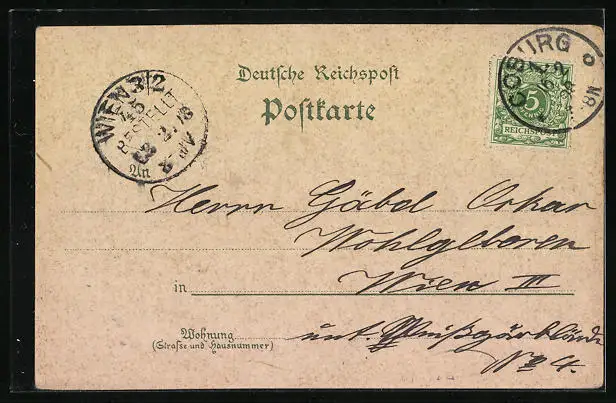 Deutsche Reichspost
Postkarte
COBURG
5
REICHSPOST
WIEN 3/2
BESTELLT
An
Herrn Göbel Oskar
Wohlgeboren
in Wien III
Wohnung unt. Weißgärberlände
(Strasse und Hausnummer)
No 4.